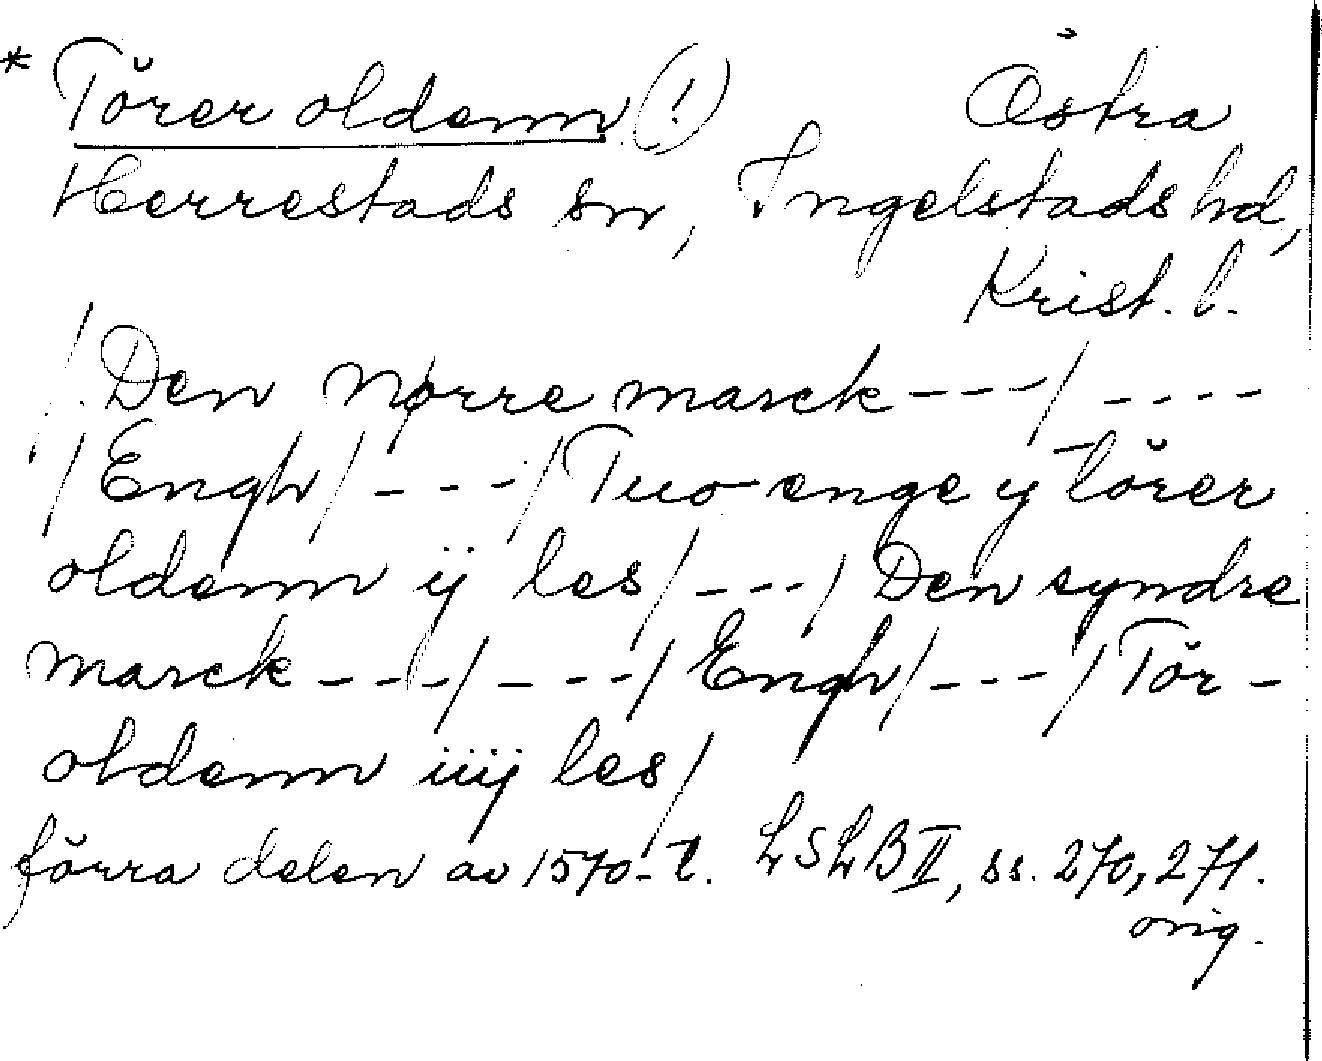 * Törer oldenn (!) Östra
Herrestads sn, Ingelstads hd,
Krist. l.
/ Den Nørre marck - - - / - - - -
/ Engh / - - - / Tuo enge ij Törer
oldenn ij les / - - - / Den syndre
marck - - - / - - - / Engh / - - - / Tör-
oldenn iiij les /
förra delen av 1570-t. LSLB II, ss. 270, 271.
orig.